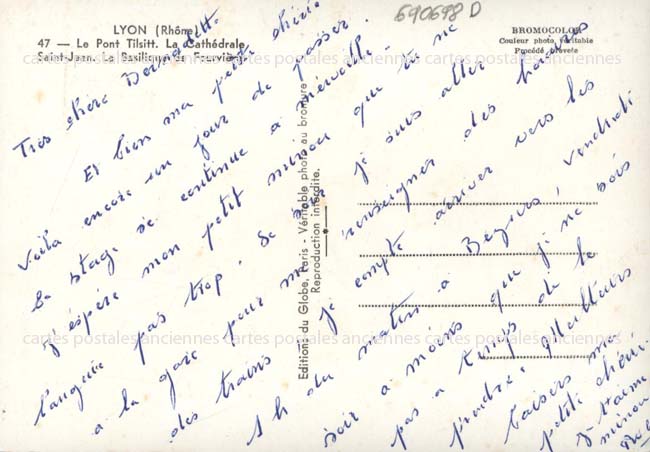 690698 D
LYON (Rhône)
47 — Le Pont Tilsitt. La Cathédrale
Saint-Jean. La Basilique de Fourvière
BROMOCOLOR
Couleur photo véritable
Procédé breveté
cartes postales anciennes cartes postales anciennes cartes postales anciennes
Très chère Bernadette
Et bien ma petite chérie
Voilà encore un jour de passer.
Le stage se continue à merveille.
J'espère mon petit minou que tu ne
languis pas trop. Ce soir je suis aller
à la gare pour me renseigner des heures
des trains je compte arriver vers les
1h du matin à Beziers, vendredi
soir à moins que je ne sois
pas à temps de le
prendre.
baisers ma
petite chérie.
J t'aime
minou
Editions du Globe, Paris - Véritable photo au bromure
Reproduction interdite.
cartes postales anciennes cartes postales anciennes cartes postales anciennes